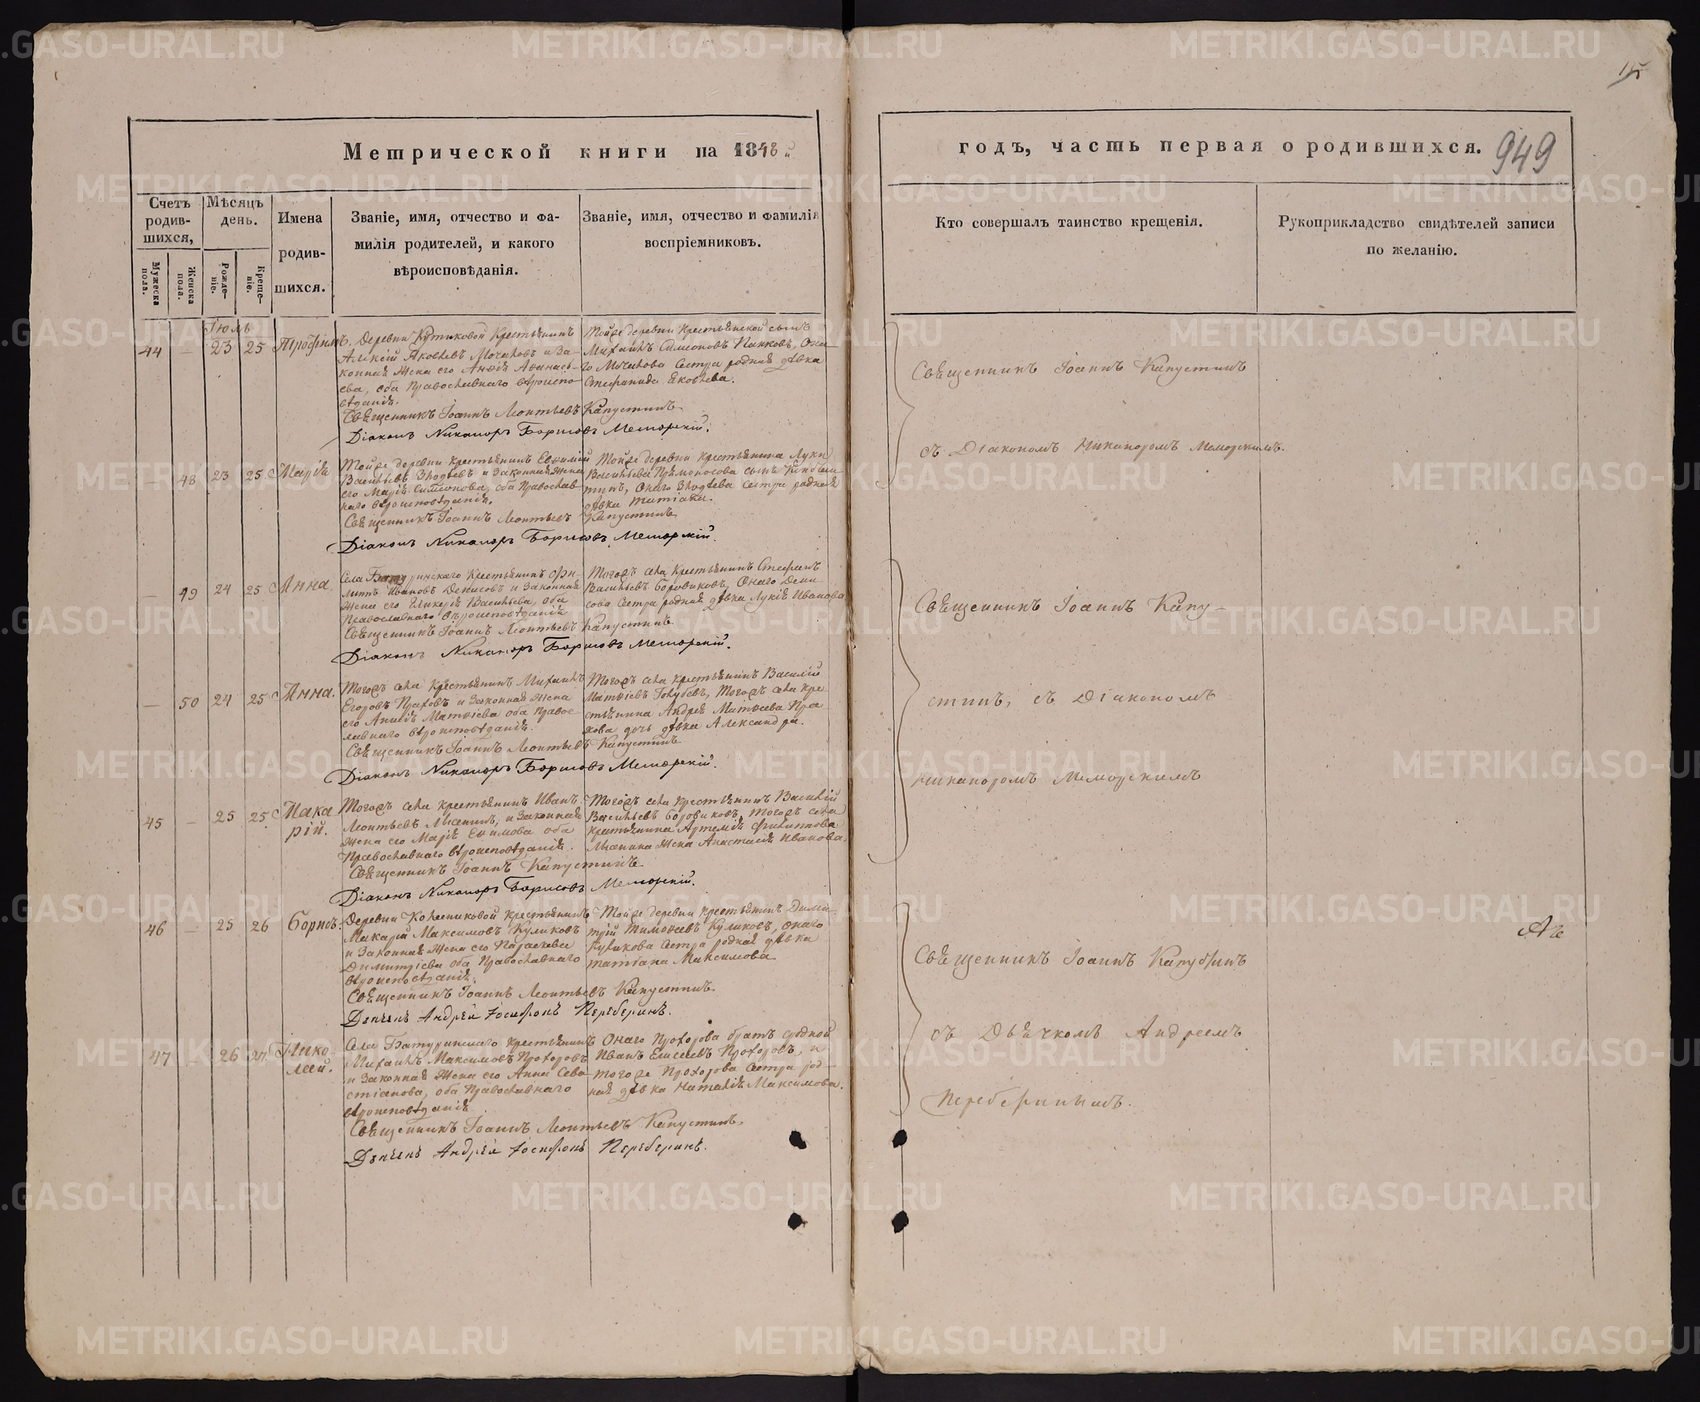 15
949
Метрической книги на 1848 й
годъ, часть первая о родившихся.
Счетъ родив-
шихся,
Мѣсяцъ
день.
Имена
родив-
шихся.
Мужеска
пола.
Женска
пола.
Рожде-
ніе.
Креще-
ніе.
Званіе, имя, отчество и фа-
милія родителей, и какого
вѣроисповѣданія.
Званіе, имя, отчество и фамилія
воспріемниковъ.
Кто совершалъ таинство крещенія.
Рукоприкладство свидѣтелей записи
по желанію.
Іюль
44 — 23 25 Трофимъ.
Деревни Крестьянинъ
Алексій Яковлевъ Мочаловъ и За-
конная Жена его
ева, оба Православнаго вѣроиспо-
вѣданія.
Тойже деревни Крестьянской сынъ
Михаилъ Симеоновъ Она-
го Мочалова Сестра родная дѣвка
Стефанида Яковлева.
Священникъ Іоаннъ Леонтьевъ Капустинъ
Діаконъ Никаноръ Борисовъ Меморскій.
— 48 23 25 Марія
Тойже деревни Крестьянинъ Евфимій
Васильевъ и Законная Жена
его Марія Симеонова, оба Православ-
наго вѣроисповѣданія.
Тойже деревни Крестьянина Луки
Васильева сынъ
Онаго Сестра родная
дѣвка Татіана.
Священникъ Іоаннъ Леонтьевъ Капустинъ
Діаконъ Никаноръ Борисовъ Меморскій.
— 49 24 25 Анна.
Села Батуринскаго Крестьянинъ Фи-
липъ Ивановъ Денисовъ и Законная
Жена его Гликерія Васильева, оба
Православнаго вѣроисповѣданія
Тогожъ села Крестьянинъ Стефанъ
Васильевъ Боровиковъ, Онаго Дени-
сова Сестра родная дѣвка Лукія Иванова
Священникъ Іоаннъ Леонтьевъ Капустинъ
Діаконъ Никаноръ Борисовъ Меморскій.
— 50 24 25 Анна.
Тогожъ села Крестьянинъ Михаилъ
Егоровъ Праховъ и Законная Жена
его Матвіева оба Правос-
лавнаго вѣроисповѣданія.
Тогожъ села Крестьянинъ Василій
Матвіевъ Голубевъ, Тогожъ села Кре-
стьянина Андрея Матвѣева Пра-
хова дочь дѣвка Александра.
Священникъ Іоаннъ Леонтьевъ Капустинъ
Діаконъ Никаноръ Борисовъ Меморскій.
45 — 25 25 Мака
рій.
Тогожъ села крестьянинъ Иванъ
Леонтьевъ и Законная
Жена его Марія Ефимова оба
Православнаго вѣроисповѣданія.
Тогожъ села Крестьянинъ Василій
Васильевъ Боровиковъ, Тогожъ села
Крестьянина Артемія Филиппова
Жена Анастасія Иванова.
Священникъ Іоаннъ Капустинъ
Діаконъ Никаноръ Борисовъ Меморскій.
46 — 25 26 Борисъ.
Деревни Колесниковой Крестьянинъ
Макарій Максимовъ Куликовъ
и Законная Жена его Параскевія
Димитріева оба Православнаго
вѣроисповѣданія.
Тойже деревни Крестьянинъ Дими-
трій Тимофеевъ Куликовъ, Онаго
Куликова Сестра родная дѣвка
Татіана Максимова
Священникъ Іоаннъ Леонтьевъ Капустинъ.
Дьячекъ Андрей Іосифовъ Переберинъ.
47 — 26 27 Нико-
лай.
Села Батуринскаго Крестьянинъ
Михаилъ Максимовъ Прохоровъ
и Законная Жена его Анна Сева-
стіанова, оба Православнаго
вѣроисповѣданія
Онаго Прохорова братъ родной
Иванъ Елисеевъ Прохоровъ, и
тогоже Прохорова Сестра род-
ная дѣвка Наталія Максимова.
Священникъ Іоаннъ Леонтьевъ Капустинъ.
Дьячекъ Андрей Іосифовъ Переберинъ.
Священникъ Іоаннъ Капустинъ
съ Діакономъ Никаноромъ Меморскимъ
Священникъ Іоаннъ Капу-
стинъ, съ Діакономъ
Никаноромъ Меморскимъ
Священникъ Іоаннъ Капустинъ
съ Дьячкомъ Андреемъ
Переберинымъ.